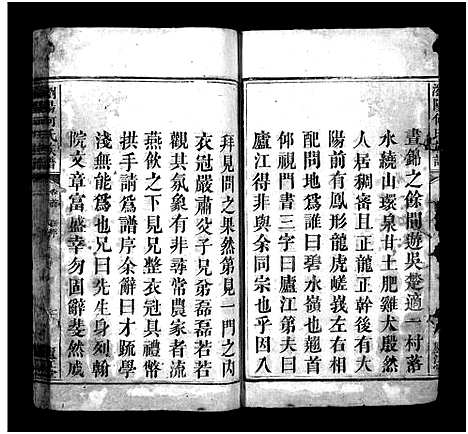 晝錦之餘閒遊吳楚適一村落
水繞山環泉甘土肥雞犬殷然
人居稠密且正龍正幹後有大
陽前有鳳形龍虎嵯峩左右相
配問地爲誰曰碧水嶺也翹首
仰視門書三字曰廬江第夫曰
廬江得非與余同宗也乎因八
拜見問之果然第見一門之内
衣冠嚴肅父子兄弟磊磊若若
觀其氣象有非尋常農家者流
燕飲之下見兄整衣冠具禮幣
拱手請爲譜序余辭曰才疏學
淺無能爲也兄曰先生身列翰
院文章富盛幸勿固辭斐然成
瀏陽何氏家譜